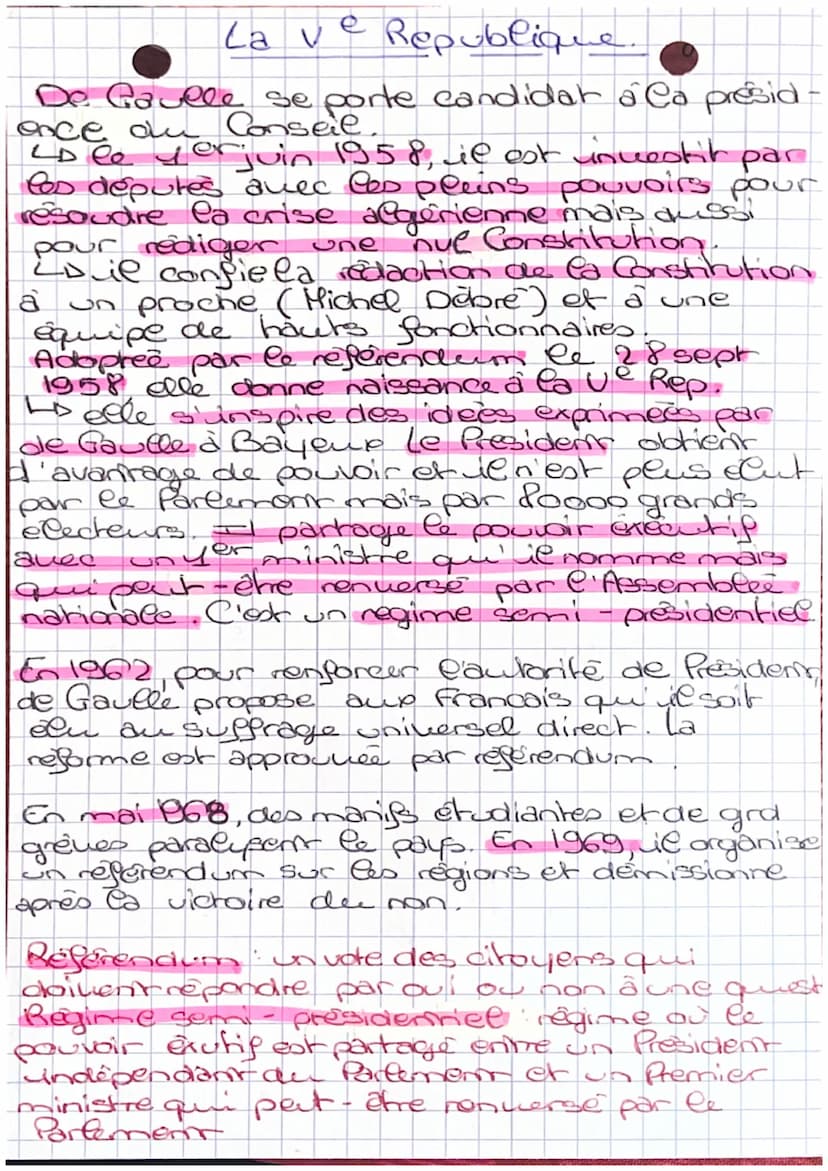 La Ve Republique.
De Gaulle se porte candidat à la présid-
ence du Conseil.
↳ le 1er juin 1958, il est investit par
les députés avec les pleins pouvoirs pour
résoudre la crise algérienne mais aussi
pour rédiger une nvl Constitution.
↳ il confie la rédaction de la Constitution
à un proche (Michel Debré) et à une
équipe de hauts fonctionnaires.
Adoptée par le référendum le 28 sept
1958 elle donne naissance à la Ve Rep.
↳ elle s'inspire des idées exprimées par
de Gaulle à Bayeux Le Président obtient
d'avantage de pouvoir et il n'est plus élut
par le Parlement mais par 80000 grands
électeurs. Il partage le pouvoir éxécutif
avec un 1er ministre qu'il nomme mais
qui peut-être renversé par l'Assemblée
nationale. C'est un regime semi-présidentiel
En 1962, pour renforcer l'autorité de Président,
de Gaulle propose aux Francais qu'il soit
élu au suffrage universel direct. La
réforme est approuvée par référendum.
En mai 1968, des manifs étudiantes et de grd
grèves paralysent le pays. En 1969, il organise
un référendum sur les régions et démissionne
après la victoire du non.
Référendum : un vote des citoyens qui
doivent répondre par oui ou non à une quest
Régime semi-présidentiel : régime où le
pouvoir éxutif est partagé entre un Président
indépendant du Parlement et un Premier
ministre qui peut-être renversé par le
Parlement